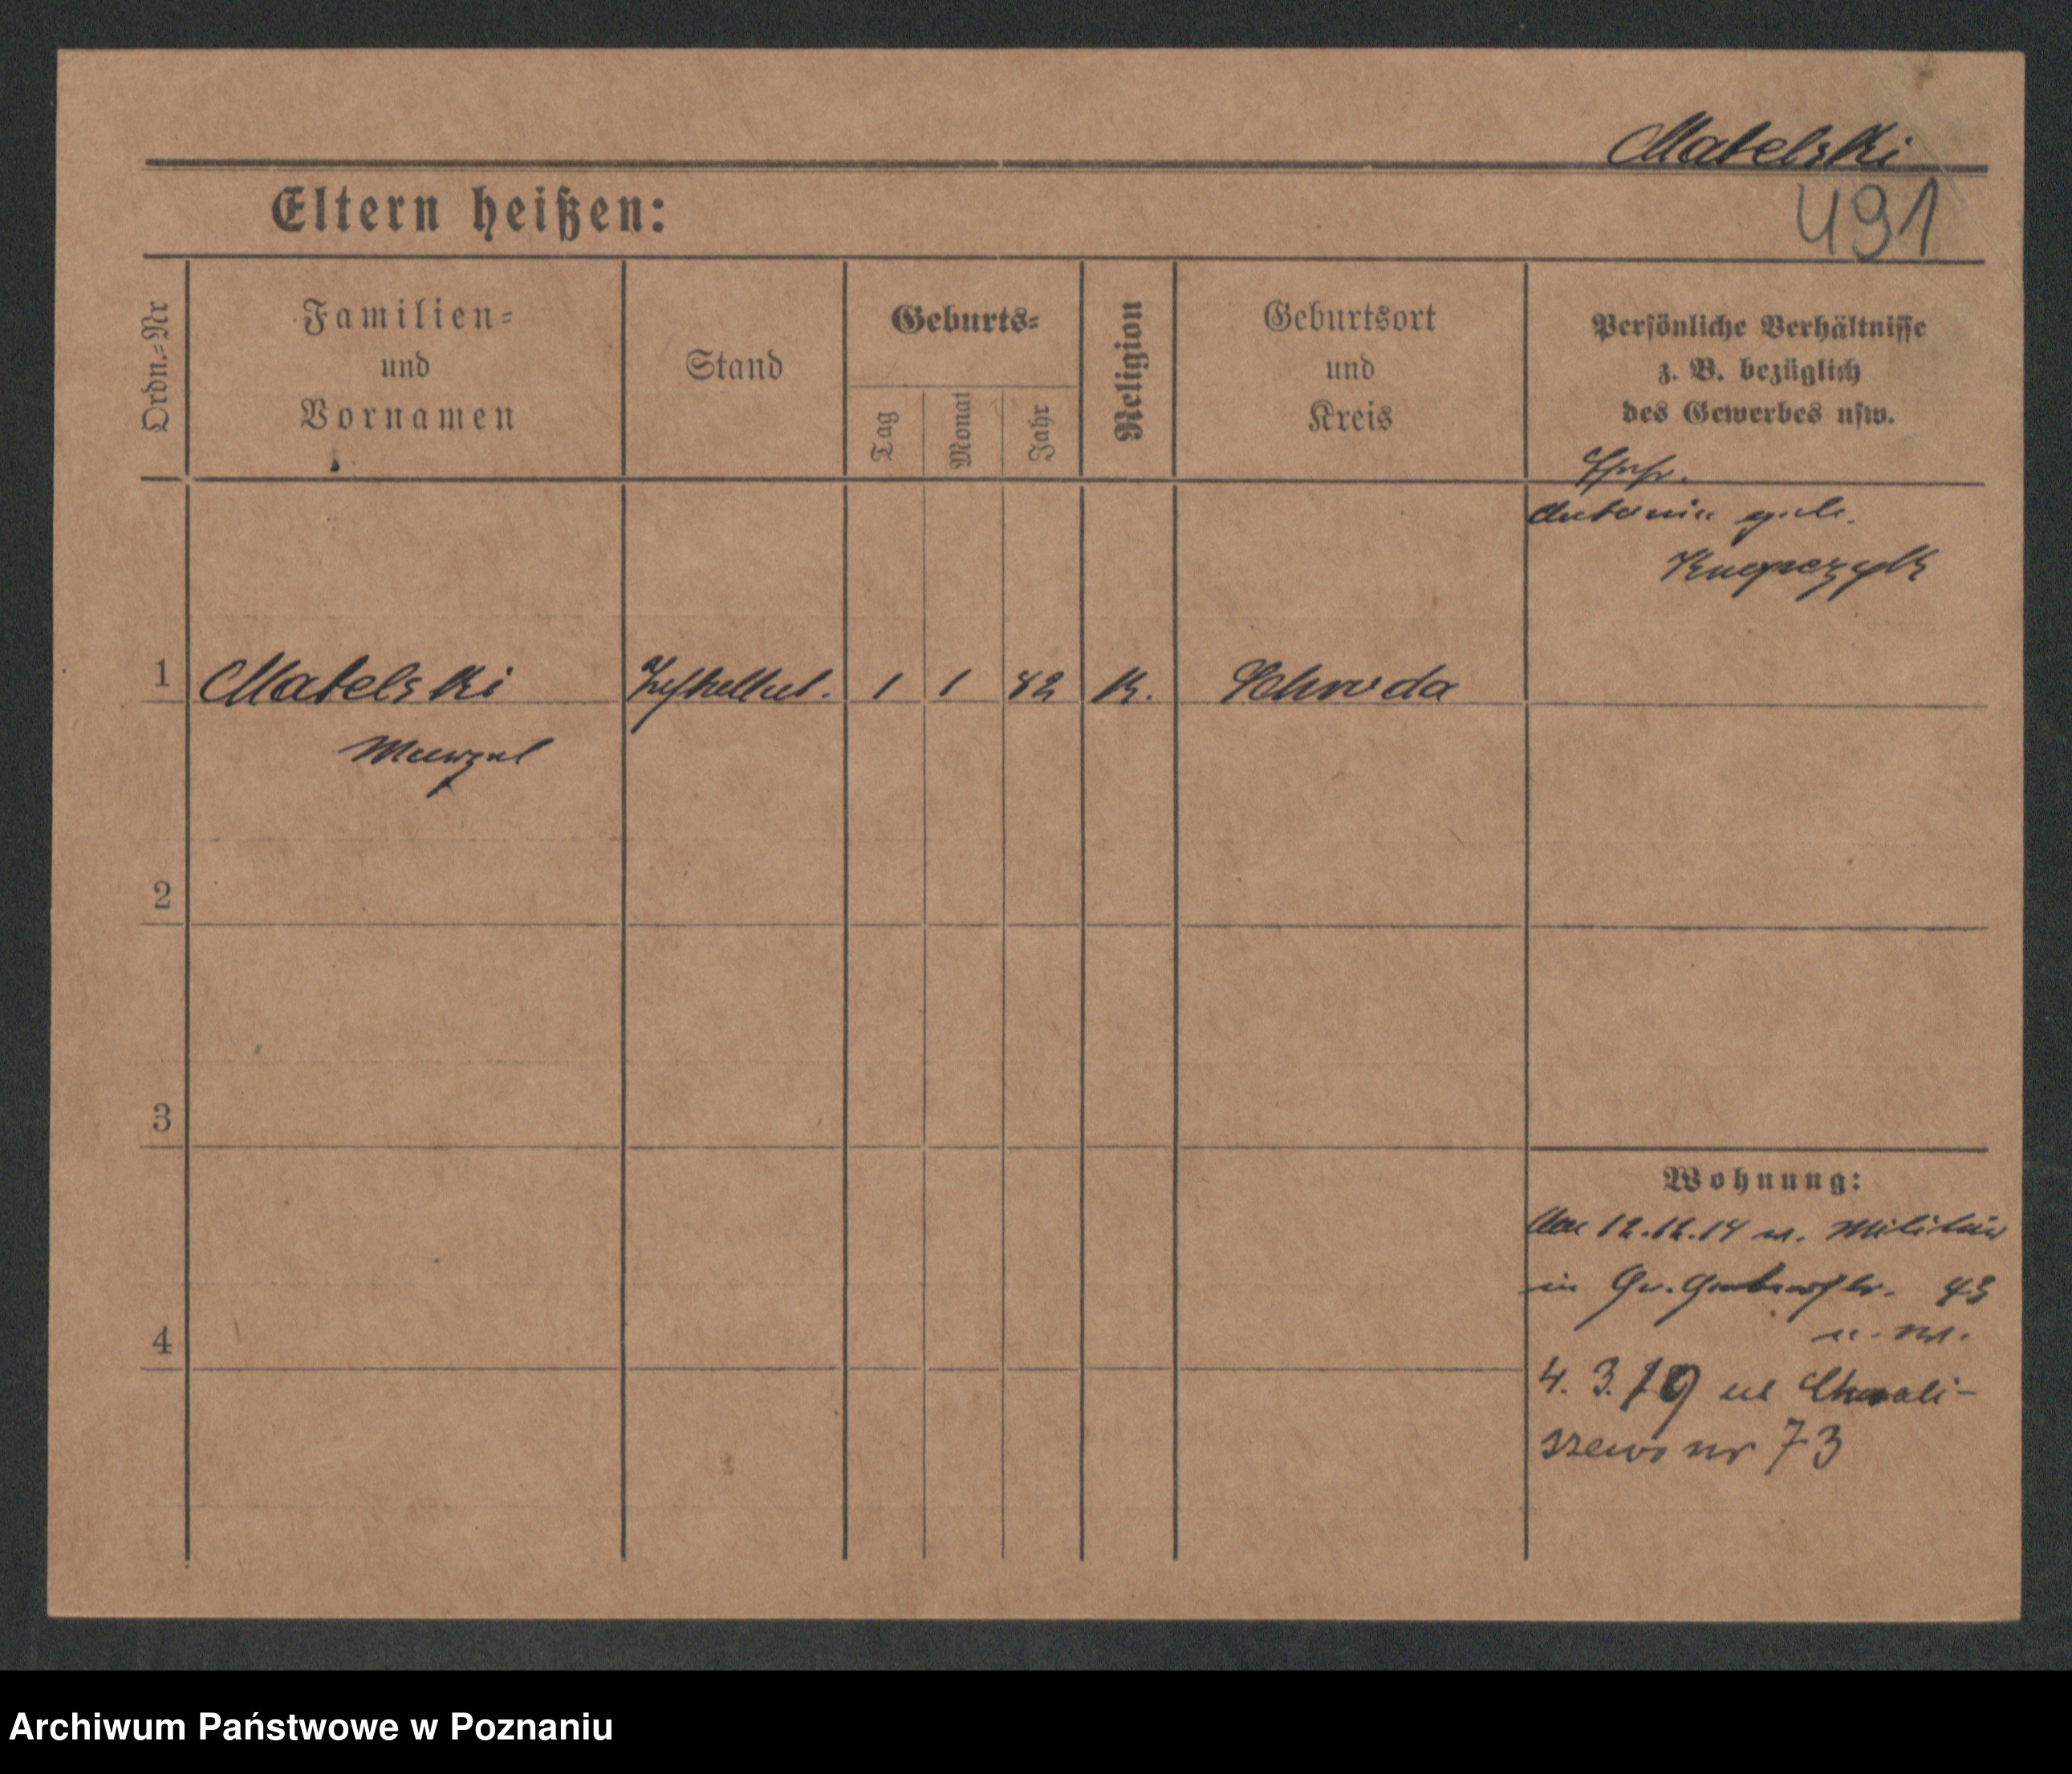 Matelski
491
Eltern heißen:
Ordn.=Nr
Familien=
und
Vornamen
Stand
Geburts=
Tag
Monat
Jahr
Religion
Geburtsort
und
Kreis
Persönliche Verhältnisse
z. B. bezüglich
des Gewerbes usw.
Ehefr.
Antonie geb.
1
Matelski
1 1 82
K.
Schroda
Wenzel
2
3
Wohnung:
12.12.14 v. Militär
in Gr. 43
4
4. 3. 19 ul Chwali-
szewo nr 73
Archiwum Państwowe w Poznaniu